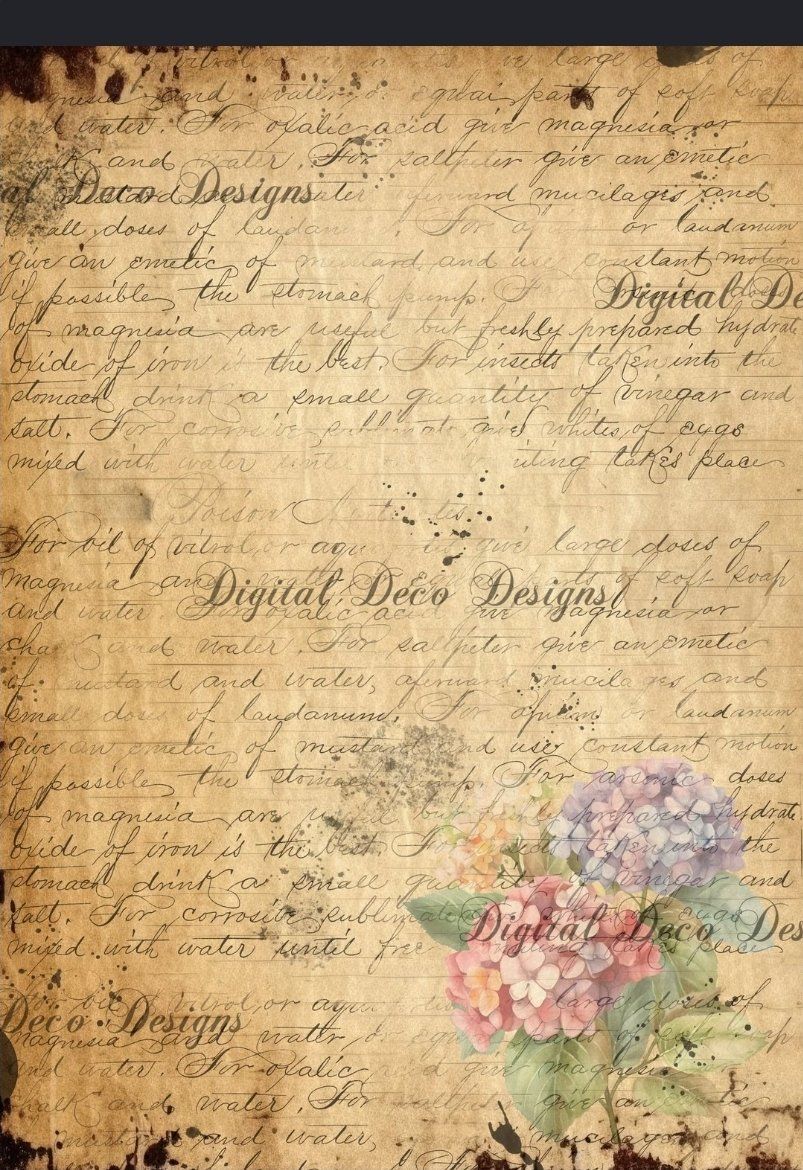 vitrol or ve large of
magnesia and water, or equal parts of soft soap
and water. For oxalic acid give magnesia or
chalk and water. For saltpeter give an emetic
al Deco Designs
of mustard and water afterward mucilages and
small doses of laudanum. For or laudanum
give an emetic of mustard, and use constant motion
Digital De
if possible, the stomach pump. doses
of magnesia are useful but freshly prepared hydrate
oxide of iron is the best. For insects taken into the
stomach drink a small quantity of vinegar and
salt. For corrosive sublimate give whites of eggs
mixed with water until uiting takes place
Poison
For oil of vitrol, or aqua give large doses of
magnesia and water equal parts of soft soap
Digital Deco Designs
and water. For oxalic acid give magnesia or
chalk and water. For saltpeter give an emetic
of mustard and water, aferward mucilages and
small doses of laudanum. For opium or laudanum
give an emetic of mustard and use constant motion
if possible, the stomach pump. For arsenic doses
of magnesia are useful but freshly prepared hydrate
oxide of iron is the best. For insects taken into the
stomach drink a small quantity of vinegar and
salt. For corrosive sublimate whites of eggs
Digital Deco Des
mixed with water until free place
For oil of vitrol, or aqua large doses of
Deco Designs
magnesia and water, or equal parts of soft soap
and water. For oxalic acid give magnesia
chalk and water. For saltpeter give an emetic
mustard and water, mucilages and